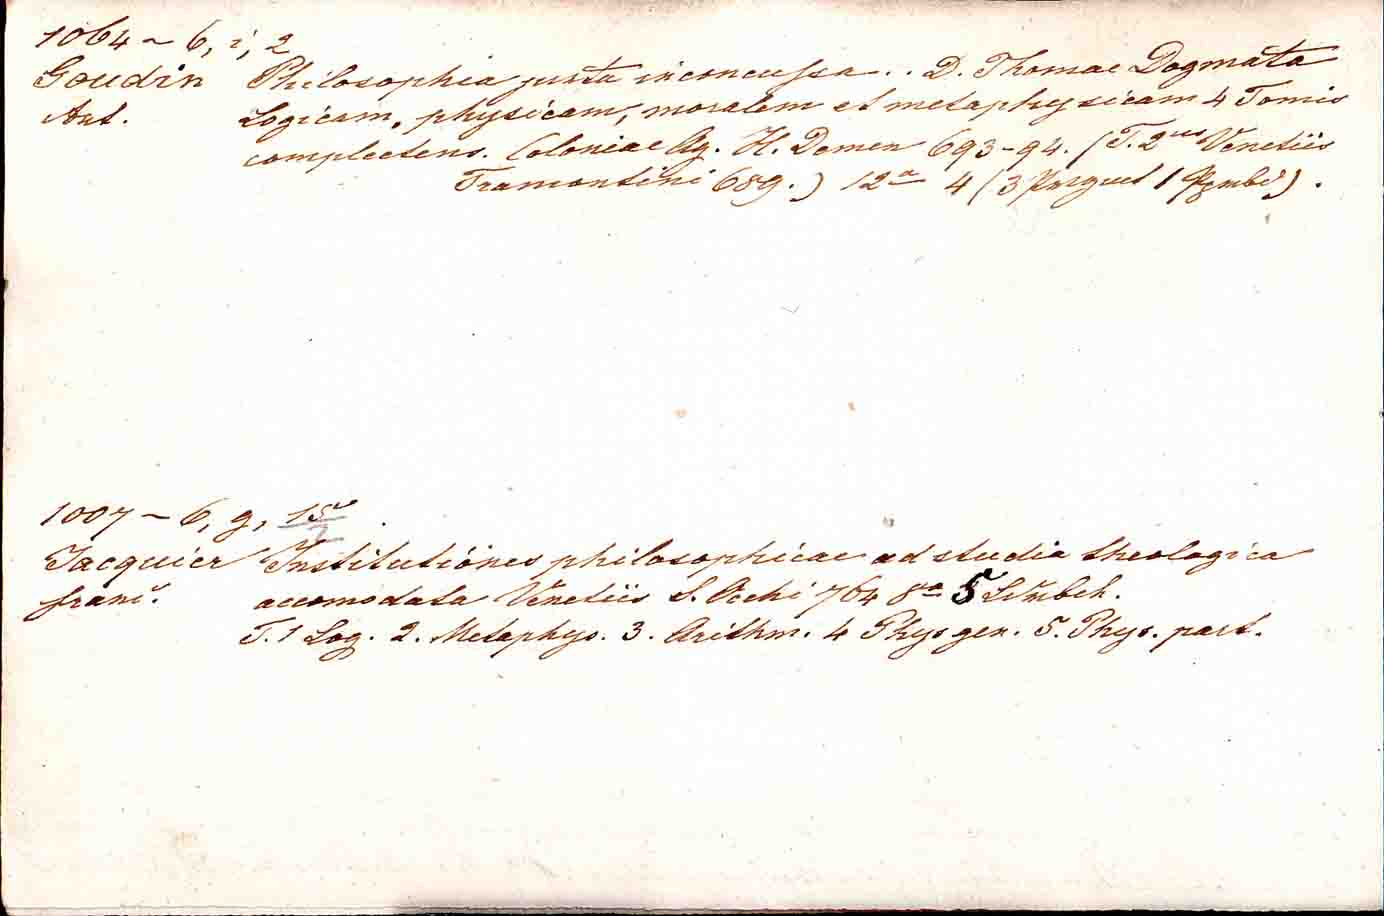 1064 ~ 6, i, 2
Goudin Philosophia juxta inconcussa . . D. Thomae Dogmata
Ant. Logicam, physicam, moralem et metaphysicam 4 Tomis
complectens. Coloniae Ag. H. Demen 693-94. (T. 2us Venetiis
Tramontini 689.) 12a 4 (3 1 ).
1007 ~ 6, g, 15
2
Jacquier Institutiones philosophicae ad studia theologica
accomodata Venetiis S. Occhi 764 8a 5
T. 1 Log. 2. Metaphys. 3. Arithm. 4 Phys gen. 5. Phys. part.